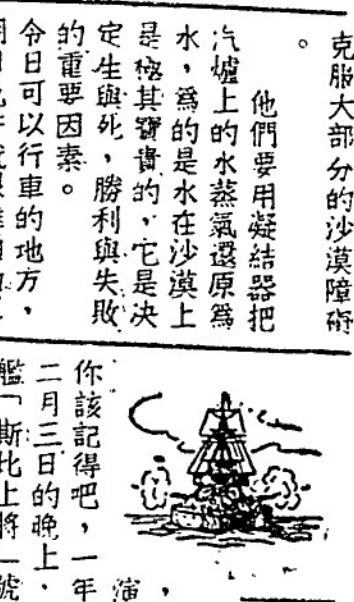 克服大部分的沙漠障礙
。
他們要用凝結器把
汽爐上的水蒸氣還原爲
水，爲的是水在沙漠上
是極其寶貴的，它是决
定生與死，勝利與失敗
的重要因素。
令日可以行車的地方，
演，
你該記得吧，一年
二月三日的晚上，
艦「斯比上將一號